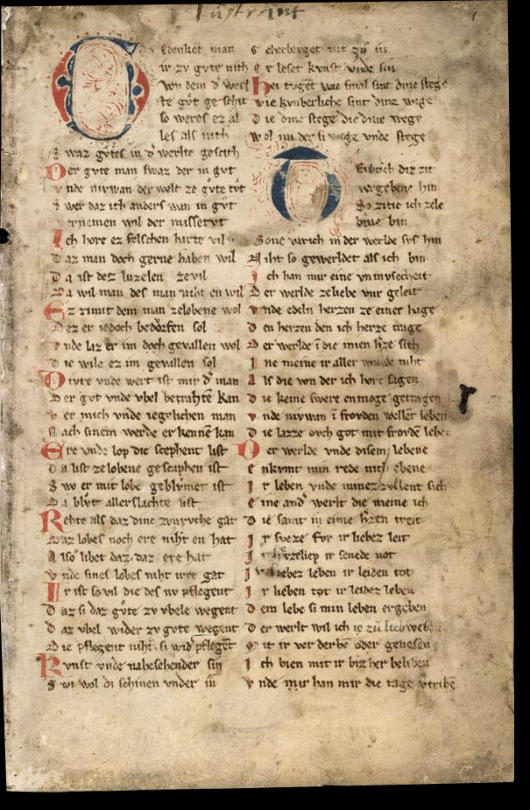 Gedenket man
ir zv gvte nith
von dem d werl
te gůt geschit
so weres ez al
les als nith
Swaz gvtes in d werlte geschith
Der gvte man swaz der in gvt
vnde nirwan der welt ze gvte tvt
Swer daz ich anders wan in gvt
vernemen wil der missetvt
Ich hore ez felschen harte vil
Daz man doch gerne haben wil
Da ist des luzelen ze vil
Da wil man des man niht en wil
Ez zimet dem man ze lobene wol
Des er iedoch bedorfen sol
vnde laz er im doch gevallen wol
die wile ez im gevallen sol
Tivre vnde wert ist mir d man
Der gvt vnde vbel betrahte kan
der mich vnde iegelichen man
nach sinem werde erkennen kan
Ere vnde lop die schephent list
Da list ze lobene geschaphen ist
Swo er mit lobe geblvmet ist
Da blvt allerslachte list
Rehte als daz dinc zvnrvche gat
Daz lobes noch ere niht en hat
Also libet daz daz ere hat
vnde sines lobes niht irre gat
Ir ist so vil die des nv pflegent
Daz si daz gvte zv vbele wegent
Daz vbel wider zv gvte wegent
Die pflegent niht si wid pflegēt
Kvnst vnde nahesehender sin
Swi wol di schinen vnder in
geherberget nit zv in
er leset kvnst vnde sin
Hei tvgent wie smal sint dine stege
wie kvmberliche sint dine wege
Die dine stege die dine wege
wol im der si wege vnde stege
Trib ich die zit
vergebene hin
So zitic ich zele
bene bin
Sone var ich in der werlde svs hin
Niht so gewerldet als ich bin
Ich han mir eine vnmvsecheit
Der werlde ze liebe vur geleit
vnde edeln herzen ze einer hage
Den herzen den ich herze trage
Der werlde i die mien hze sich
Ine meine ir aller werlde niht
Als die von der ich hore sagen
Die keine swere en moge getragen
vnde niwan i frovden wellēt leben
die lazze ovch got mit frovde leben
Der werlde vnde disem lebene
enkvmt min rede niht ebene
Ir leben vnde minez zweient sich
eine and werlt die meine ich
Die samt in eime hzen treit
Ir sveze svr ir liebez leit
Ir herzeliep ir senede not
Ir liebez leben ir leiden tot
Ir lieben tot ir leidez leben
Dem lebe si min leben ergeben
Der werlt wil ich
mit ir verderbe oder genesen
Ich bien mit ir biz her beliben
vnde mir han mir die tage vtribē